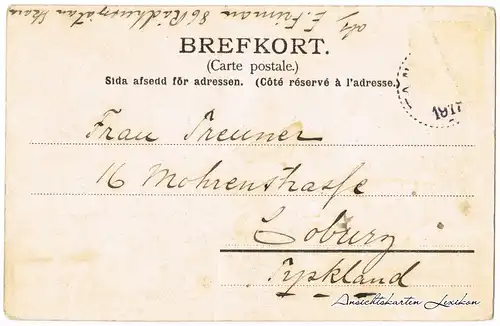 BREFKORT.
(Carte postale.)
Sida afsedd för adressen. (Côté réservé à l'adresse.
1917
Frau Preuner
16 Mohrenstrasse
Coburg
Tyskland
Ansichtskarten Lexikon